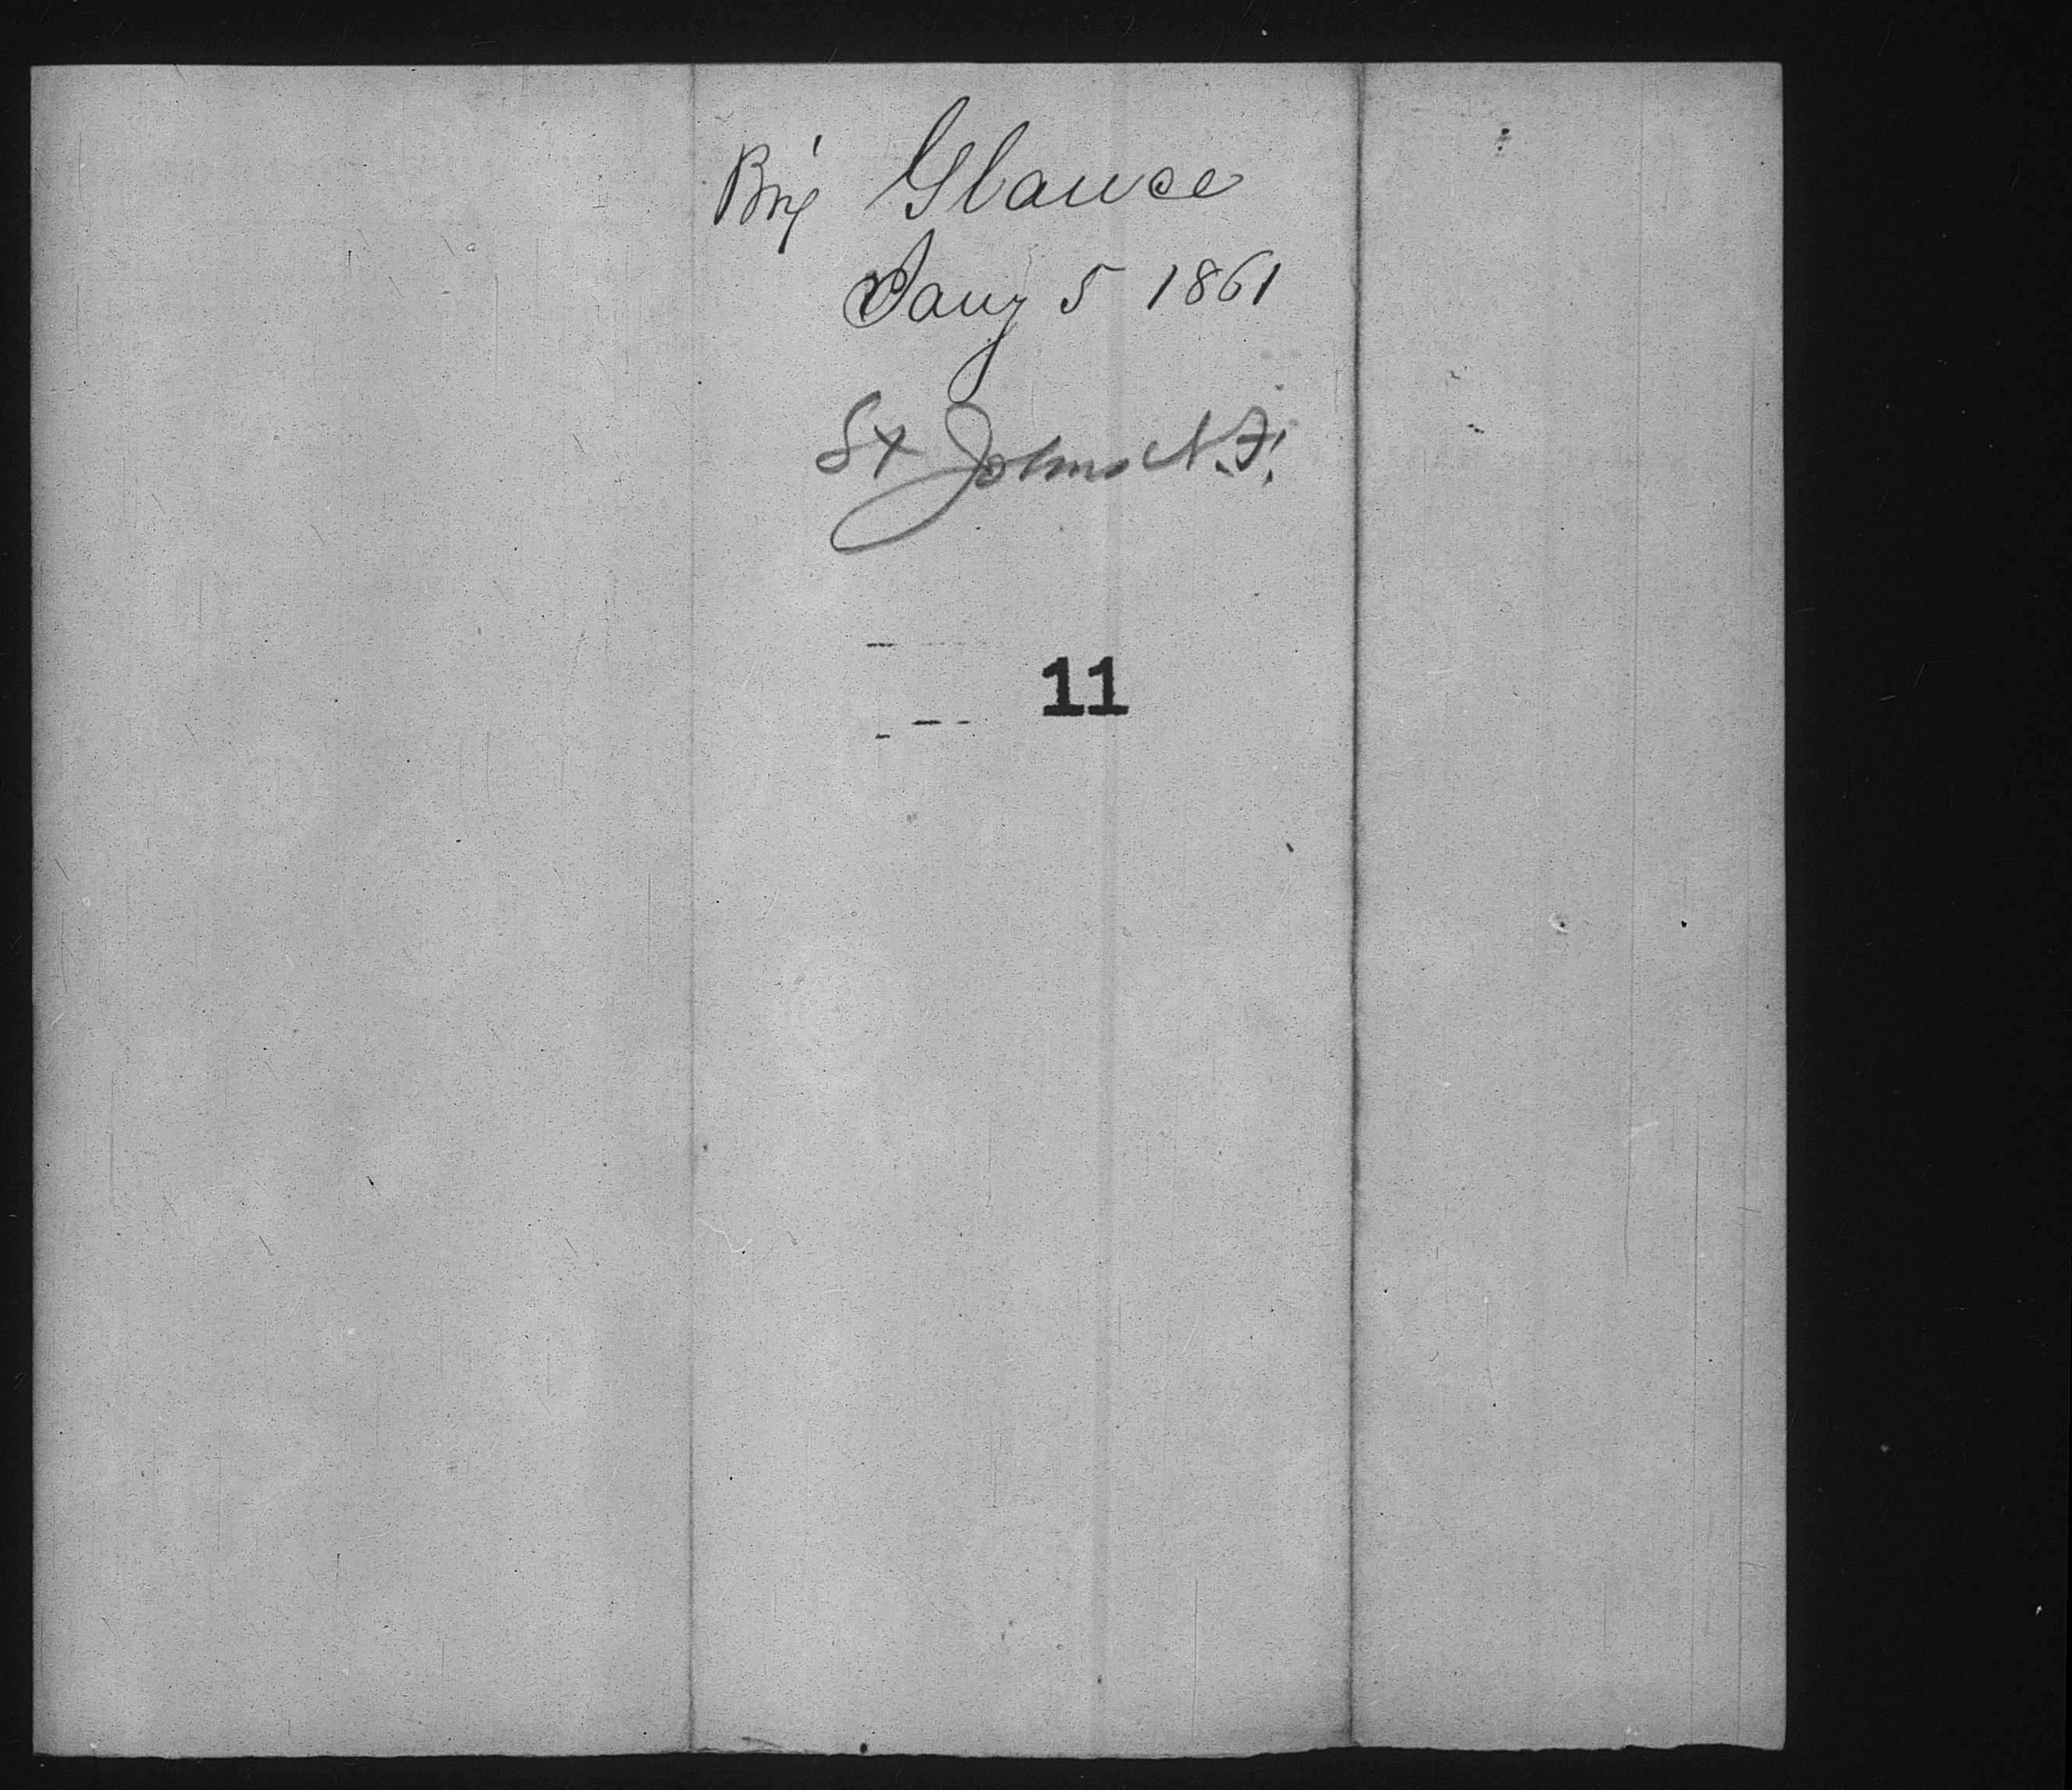 Brig Glauce
Jany 5 1861
St Johns N.F.
11